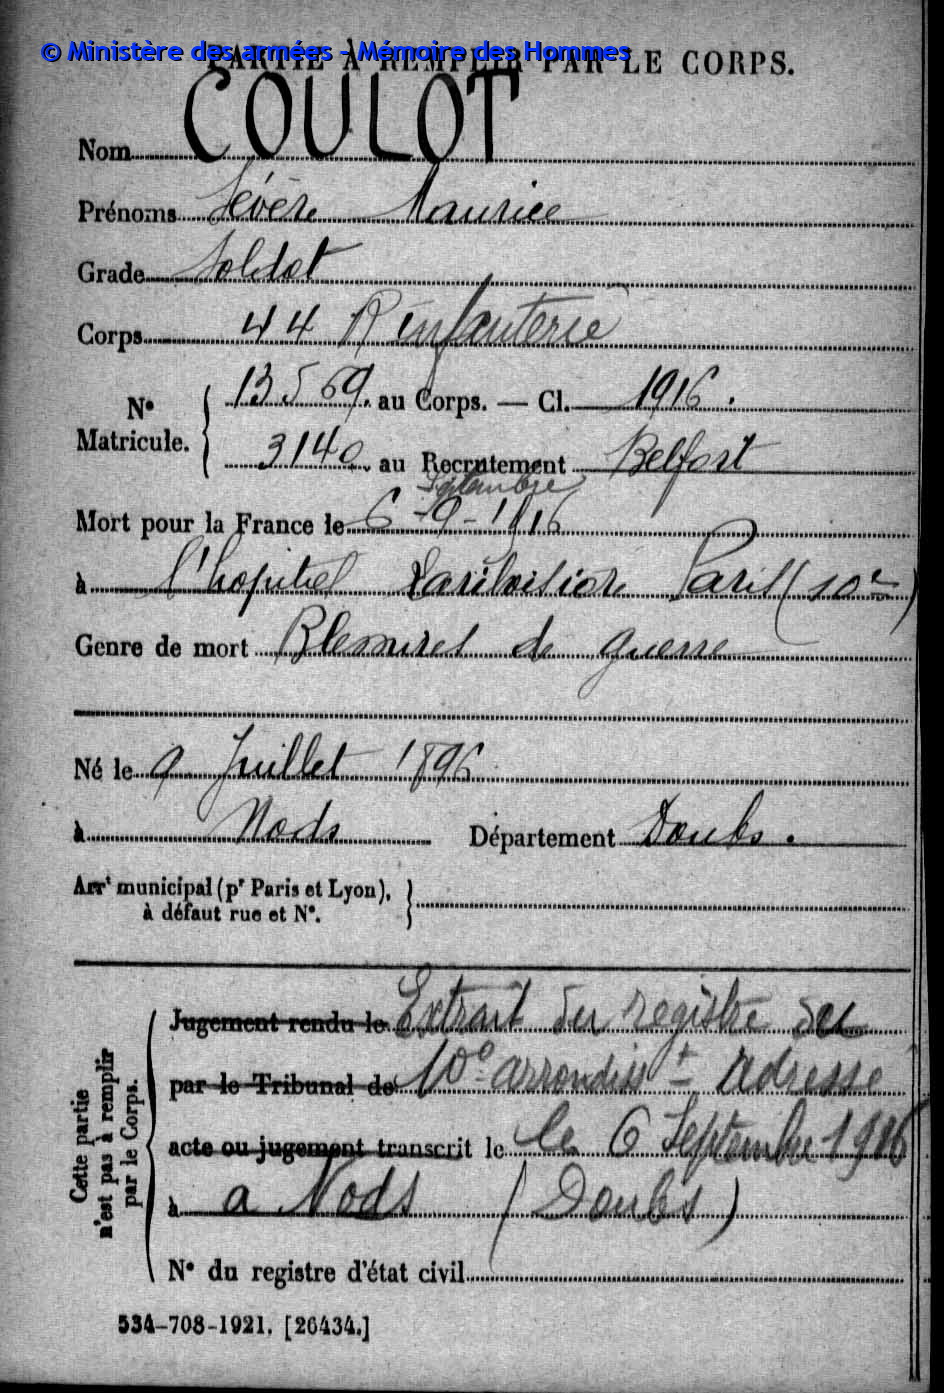 © Ministère des armées - Mémoire des Hommes
PARTIE À REMPLIR PAR LE CORPS.
Nom COULOT
Prénoms Sévère Maurice
Grade Soldat
Corps 44 R infanterie
N° Matricule. 13569. au Corps. — Cl. 1916.
3140. au Recrutement Belfort
Septembre
Mort pour la France le 6-9-1916
à l'hopital Lariboisière Paris (10e)
Genre de mort Blessures de guerre
Né le 9 Juillet 1896
à Nods Département Doubs.
Arrt municipal (pr Paris et Lyon),
à défaut rue et N°.
Cette partie n'est pas à remplir par le Corps.
Jugement rendu le Extrait du registre du
par le Tribunal de 10e arrondisst adressé
acte ou jugement transcrit le le 6 Septembre 1916
à a Nods (Doubs)
N° du registre d'état civil
534-708-1921. [26434.]